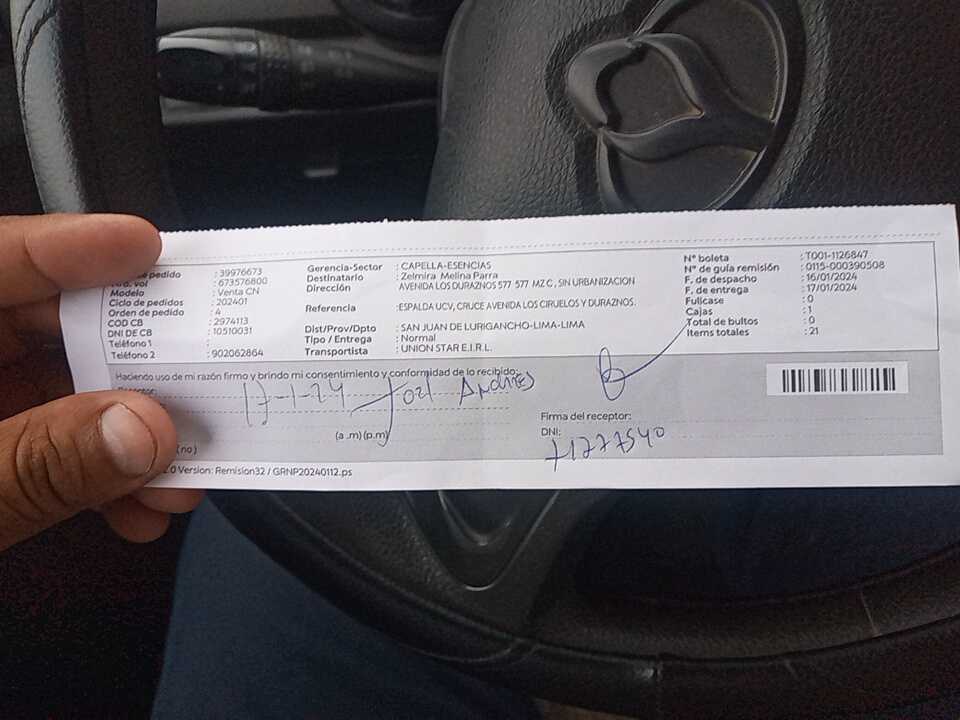 de pedido : 39976673
vol : 673576800
Modelo : Venta CN
Ciclo de pedidos : 202401
Orden de pedido : 4
COD CB : 2974113
DNI DE CB : 10510031
Teléfono 1 :
Teléfono 2 : 902062864
Gerencia-Sector : CAPELLA-ESENCIAS
Destinatario : Zelmira Melina Parra
Dirección AVENIDA LOS DURAZNOS 577 577 MZ C , SIN URBANIZACION
Referencia : ESPALDA UCV, CRUCE AVENIDA LOS CIRUELOS Y DURAZNOS.
Dist/Prov/Dpto : SAN JUAN DE LURIGANCHO-LIMA-LIMA
Tipo / Entrega : Normal
Transportista : UNION STAR E.I.R.L.
N° boleta : T001-1126847
N° de guía remisión : 0115-000390508
F. de despacho : 16/01/2024
F. de entrega : 17/01/2024
Fullcase : 0
Cajas : 1
Total de bultos : 0
Items totales : 21
Haciendo uso de mi razón firmo y brindo mi consentimiento y conformidad de lo recibido:
17-1-24 Joel Andres
(a .m) (p.m)
(no)
Firma del receptor:
DNI:
71277540
2.0 Version: Remision32 / GRNP20240112.ps